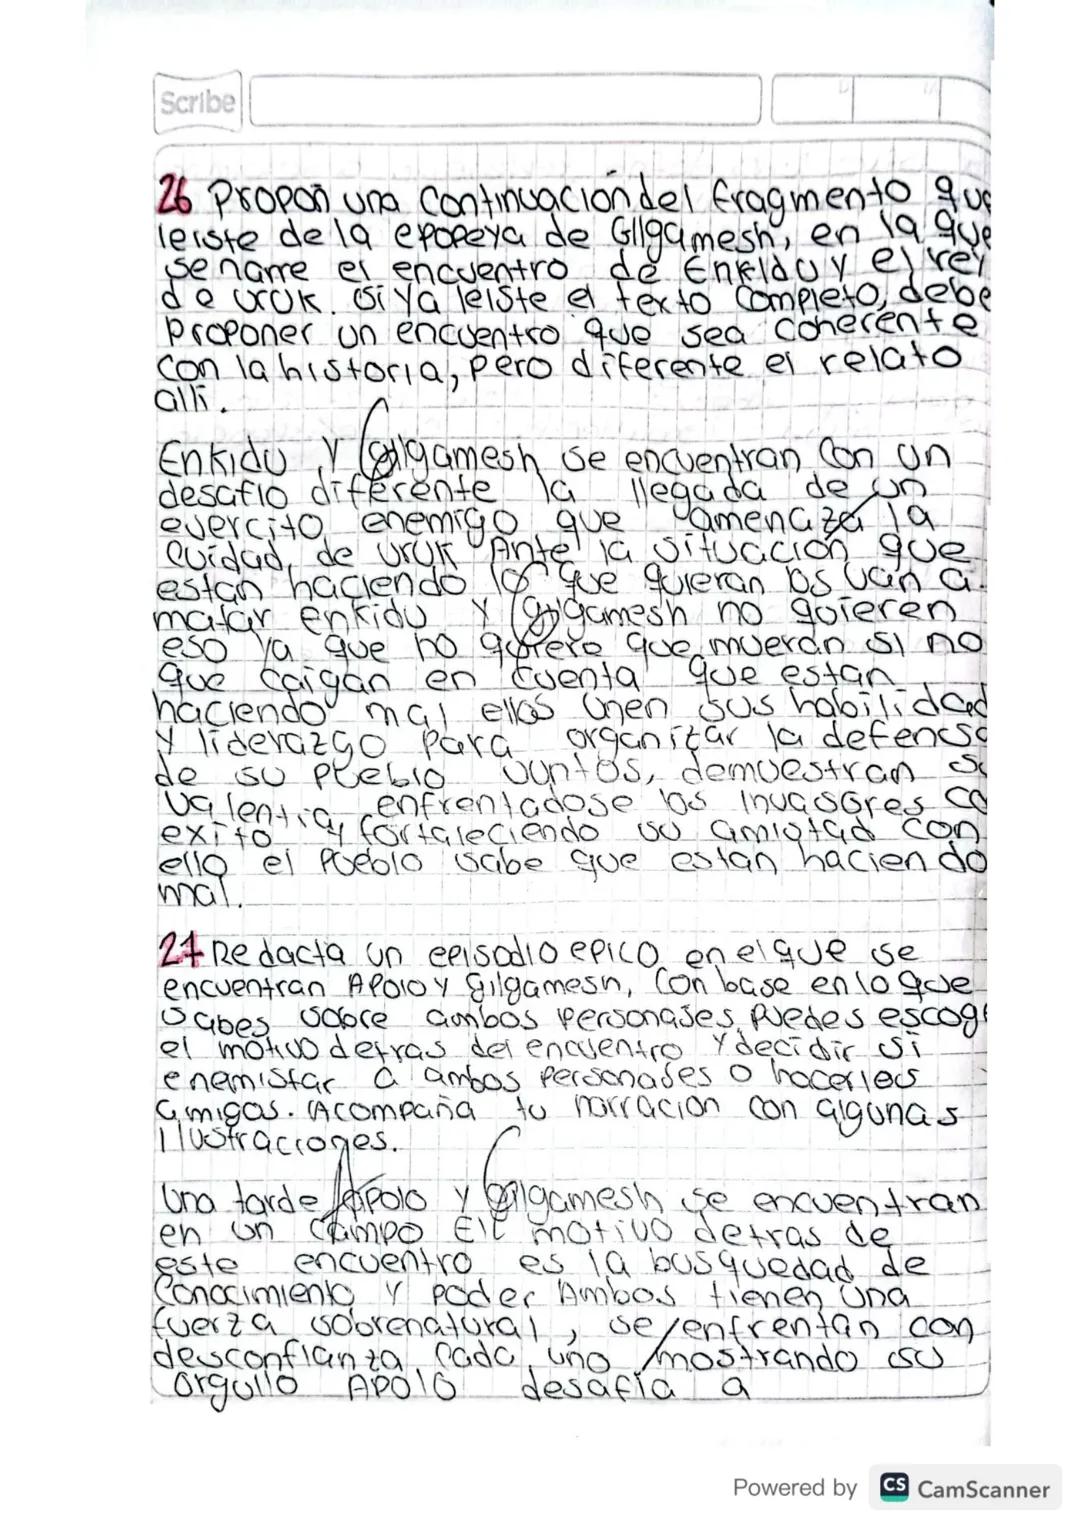 Scribe
26 Propon una continuacion del fragmento que
leiste de la epopeya de Gilgamesh, en la que
se narre el encuentro de Enkidu y el rey
de uruk. Si ya leiste el texto completo, debe
proponer un encuentro que sea coherente
con la historia, pero diferente el relato
alli.
Enkidu y Gilgamesh se encuentran con un
desafio diferente la llegada de un
evercito enemigo que amenaza la
cuidad de uruk Ante la situación que
estan haciendo lo que quieran los van a
matar enkidu y Gilgamesh no quieren
eso ya que no quiere que mueran si no
que caigan en cuenta que estan
haciendo mal ellos unen sus habilidad
y liderazgo para organizar la defensa
de su pueblo juntos, demuestran su
valentia enfrentadose los invasores co
exito y fortaleciendo su amistad con
ello el pueblo sabe que estan haciendo
mal.
27 Redacta un episodio epico en el que se
encuentran Apolo y gilgamesh, Con base en lo que
sabes sobre ambos personajes, puedes escoge
el motivo detras del encuentro y decidir si
enemistar a ambos personajes o hacerlos
amigos. Acompaña tu narracion con algunas
ilustraciones.
Una tarde Apolo y Gilgamesh se encuentran
en un campo El motivo detras de
este encuentro es la busquedad de
Conocimiento y poder Ambos tienen una
fuerza sobrenatural, se enfrentan con
desconfianza cada uno mostrando su
orgullo Apolo desafia a
Powered by CS CamScanner